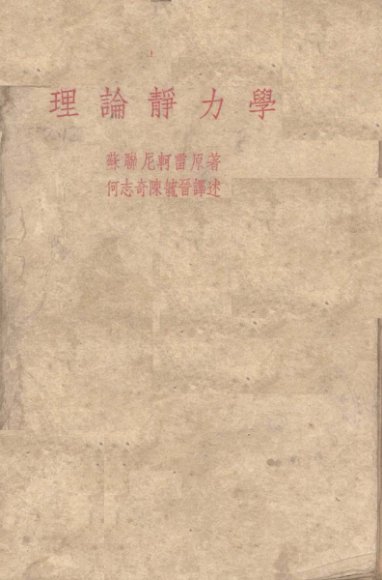 理論靜力學
蘇聯尼柯雷原著
何志奇陳毓晉譯述